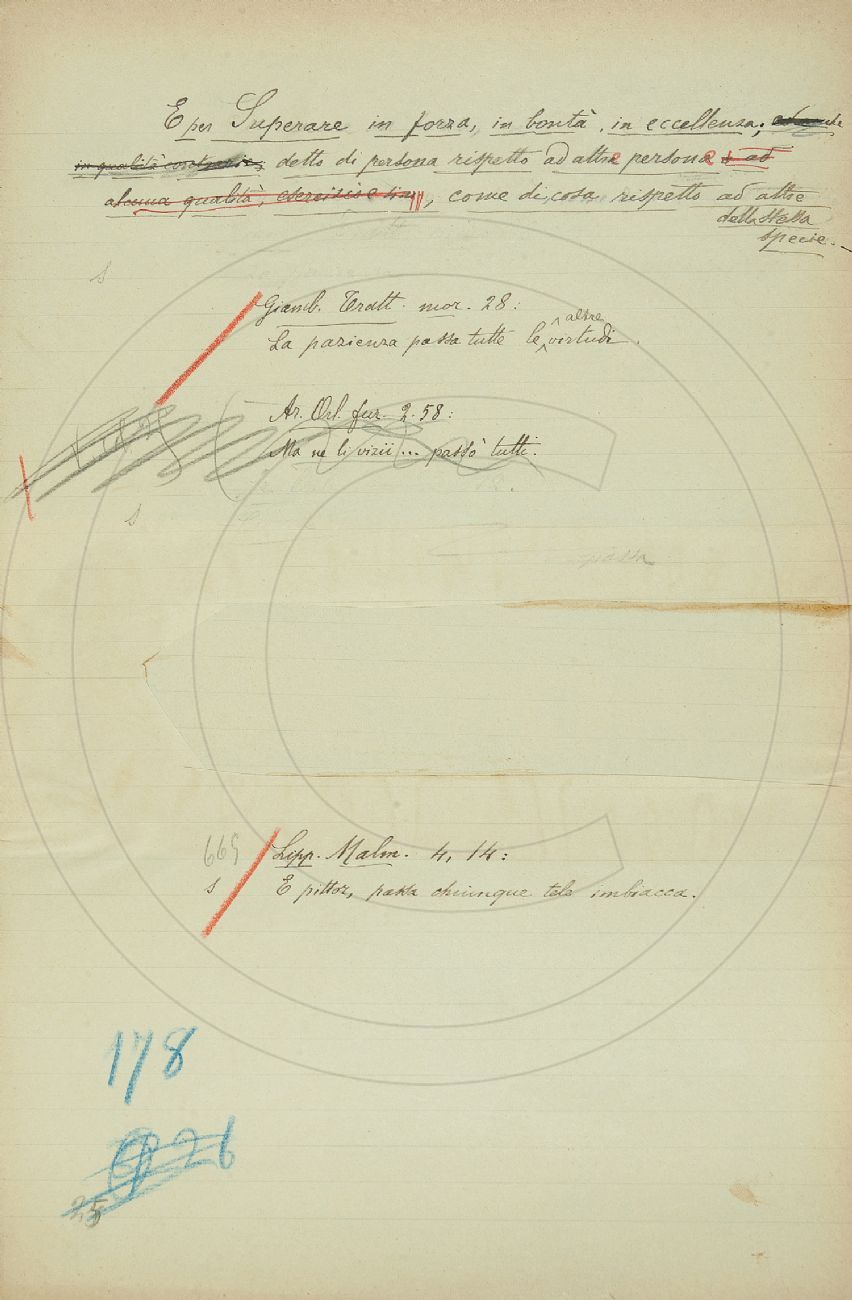 E per Superare in forza, in bontà, in eccellenza,
in qualità detto di persona rispetto ad altre persone o ad
alcuna qualità, esercizio e sim, come di cosa rispetto ad altre
della stessa
specie.
s
Giamb. Tratt. mor. 28:
altre
La pazienza passa tutte le virtudi.
Ar. Orl. fur. 2. 58:
Ma ne li vizii... passò tutti.
s
passa
669
Lipp. Malm. 4, 14:
s
E pittor, passa chiunque tele imbiacca.
178
25